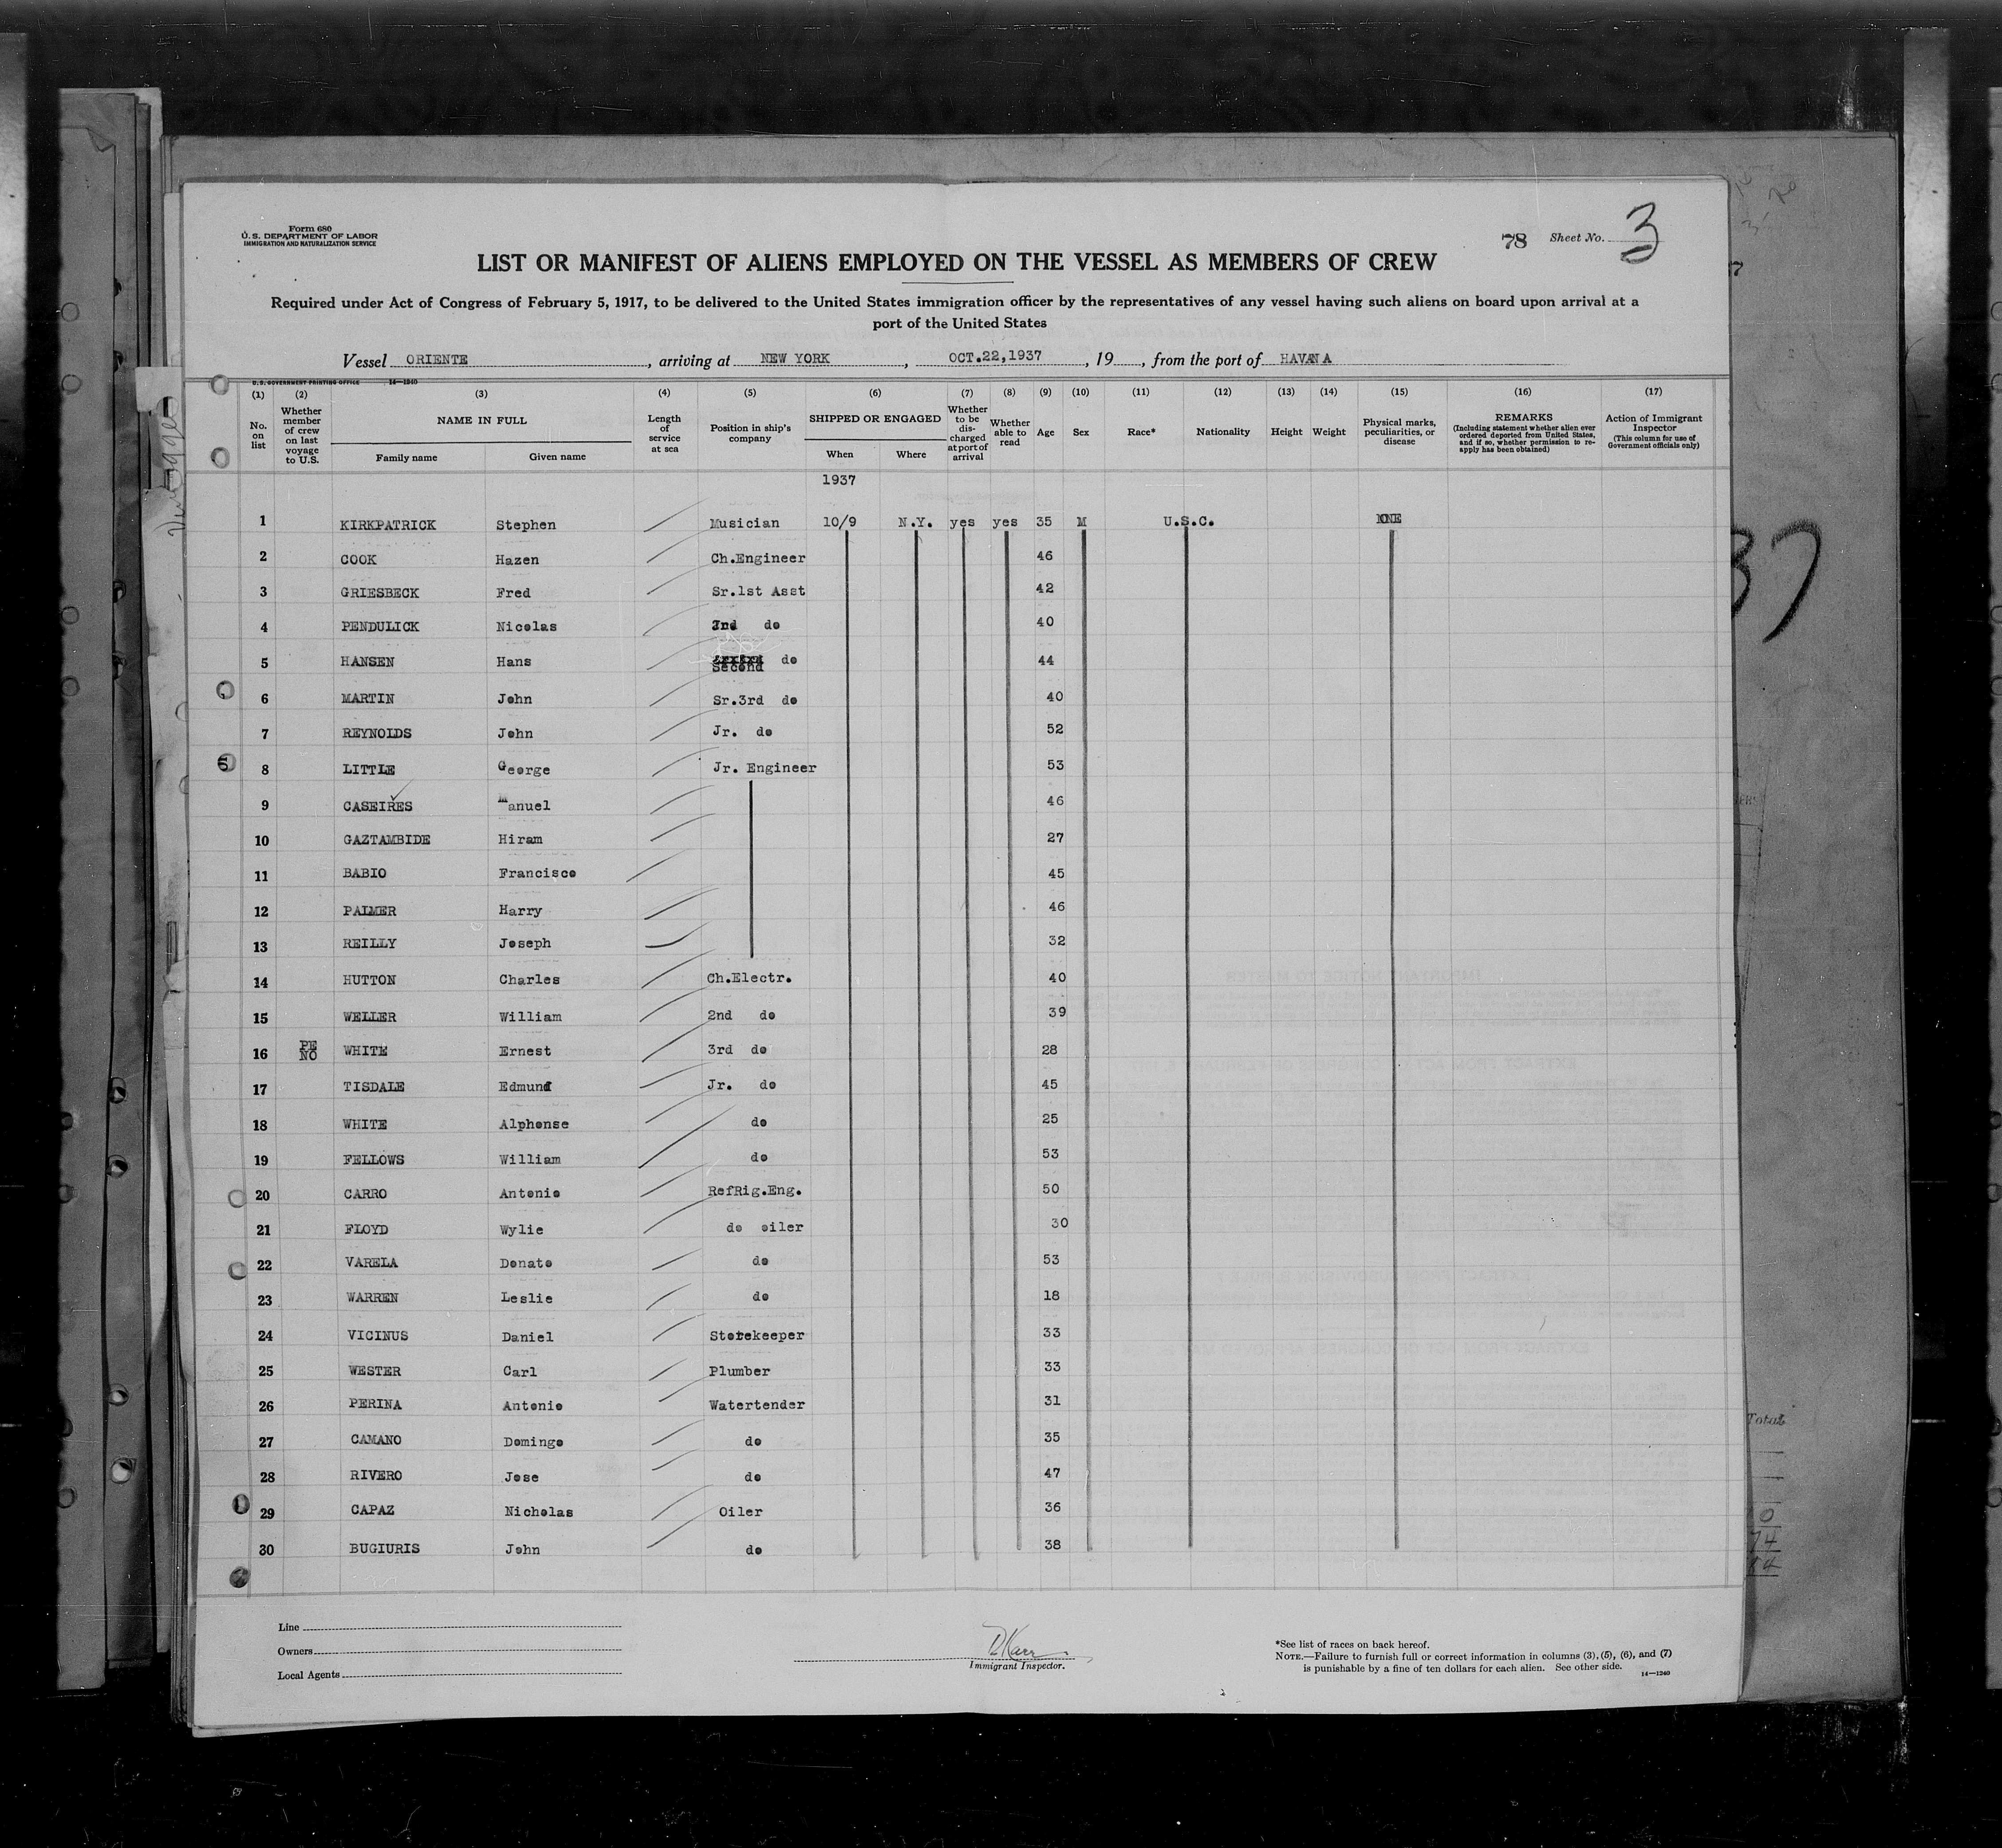 Form 680
U. S. DEPARTMENT OF LABOR
IMMIGRATION AND NATURALIZATION SERVICE
78 Sheet No. 3
LIST OR MANIFEST OF ALIENS EMPLOYED ON THE VESSEL AS MEMBERS OF CREW
Required under Act of Congress of February 5, 1917, to be delivered to the United States immigration officer by the representatives of any vessel having such aliens on board upon arrival at a
port of the United States
Vessel ORIENTE, arriving at NEW YORK, OCT.22,1937, 19, from the port of HAVANA
U. S. GOVERNMENT PRINTING OFFICE 14—1240
(1) No. on list
(2) Whether member of crew on last voyage to U.S.
(3) NAME IN FULL Family name Given name
(4) Length of service at sea
(5) Position in ship's company
(6) SHIPPED OR ENGAGED When Where
(7) Whether to be discharged at port of arrival
(8) Whether able to read
(9) Age
(10) Sex
(11) Race*
(12) Nationality
(13) Height
(14) Weight
(15) Physical marks, peculiarities, or disease
(16) REMARKS (Including statement whether alien ever ordered deported from United States, and if so, whether permission to reapply has been obtained)
(17) Action of Immigrant Inspector (This column for use of Government officials only)
1937
1 KIRKPATRICK Stephen Musician 10/9 N.Y. yes yes 35 M U.S.C.
2 COOK Hazen Ch.Engineer 46
3 GRIESBECK Fred Sr.1st Asst 42
4 PENDULICK Nicolas 2nd do 40
5 HANSEN Hans Second do 44
6 MARTIN John Sr.3rd do 40
7 REYNOLDS John Jr. do 52
8 LITTLE George Jr. Engineer 53
9 CASEIRES Manuel 46
10 GAZTAMBIDE Hiram 27
11 BABIO Francisco 45
12 PALMER Harry 46
13 REILLY Joseph 32
14 HUTTON Charles Ch.Electr. 40
15 WELLER William 2nd do 39
16 PE NO WHITE Ernest 3rd do 28
17 TISDALE Edmund Jr. do 45
18 WHITE Alphonse do 25
19 FELLOWS William do 53
20 CARRO Antonio RefRig.Eng. 50
21 FLOYD Wylie do oiler 30
22 VARELA Donato do 53
23 WARREN Leslie do 18
24 VICINUS Daniel Storekeeper 33
25 WESTER Carl Plumber 33
26 PERINA Antonio Watertender 31
27 CAMANO Domingo do 35
28 RIVERO Jose do 47
29 CAPAZ Nicholas Oiler 36
30 BUGIURIS John do 38
Line
Owners
Local Agents
D Karr
Immigrant Inspector.
*See list of races on back hereof.
NOTE.—Failure to furnish full or correct information in columns (3), (5), (6), and (7)
is punishable by a fine of ten dollars for each alien. See other side.
14—1240
37
Total
0
74